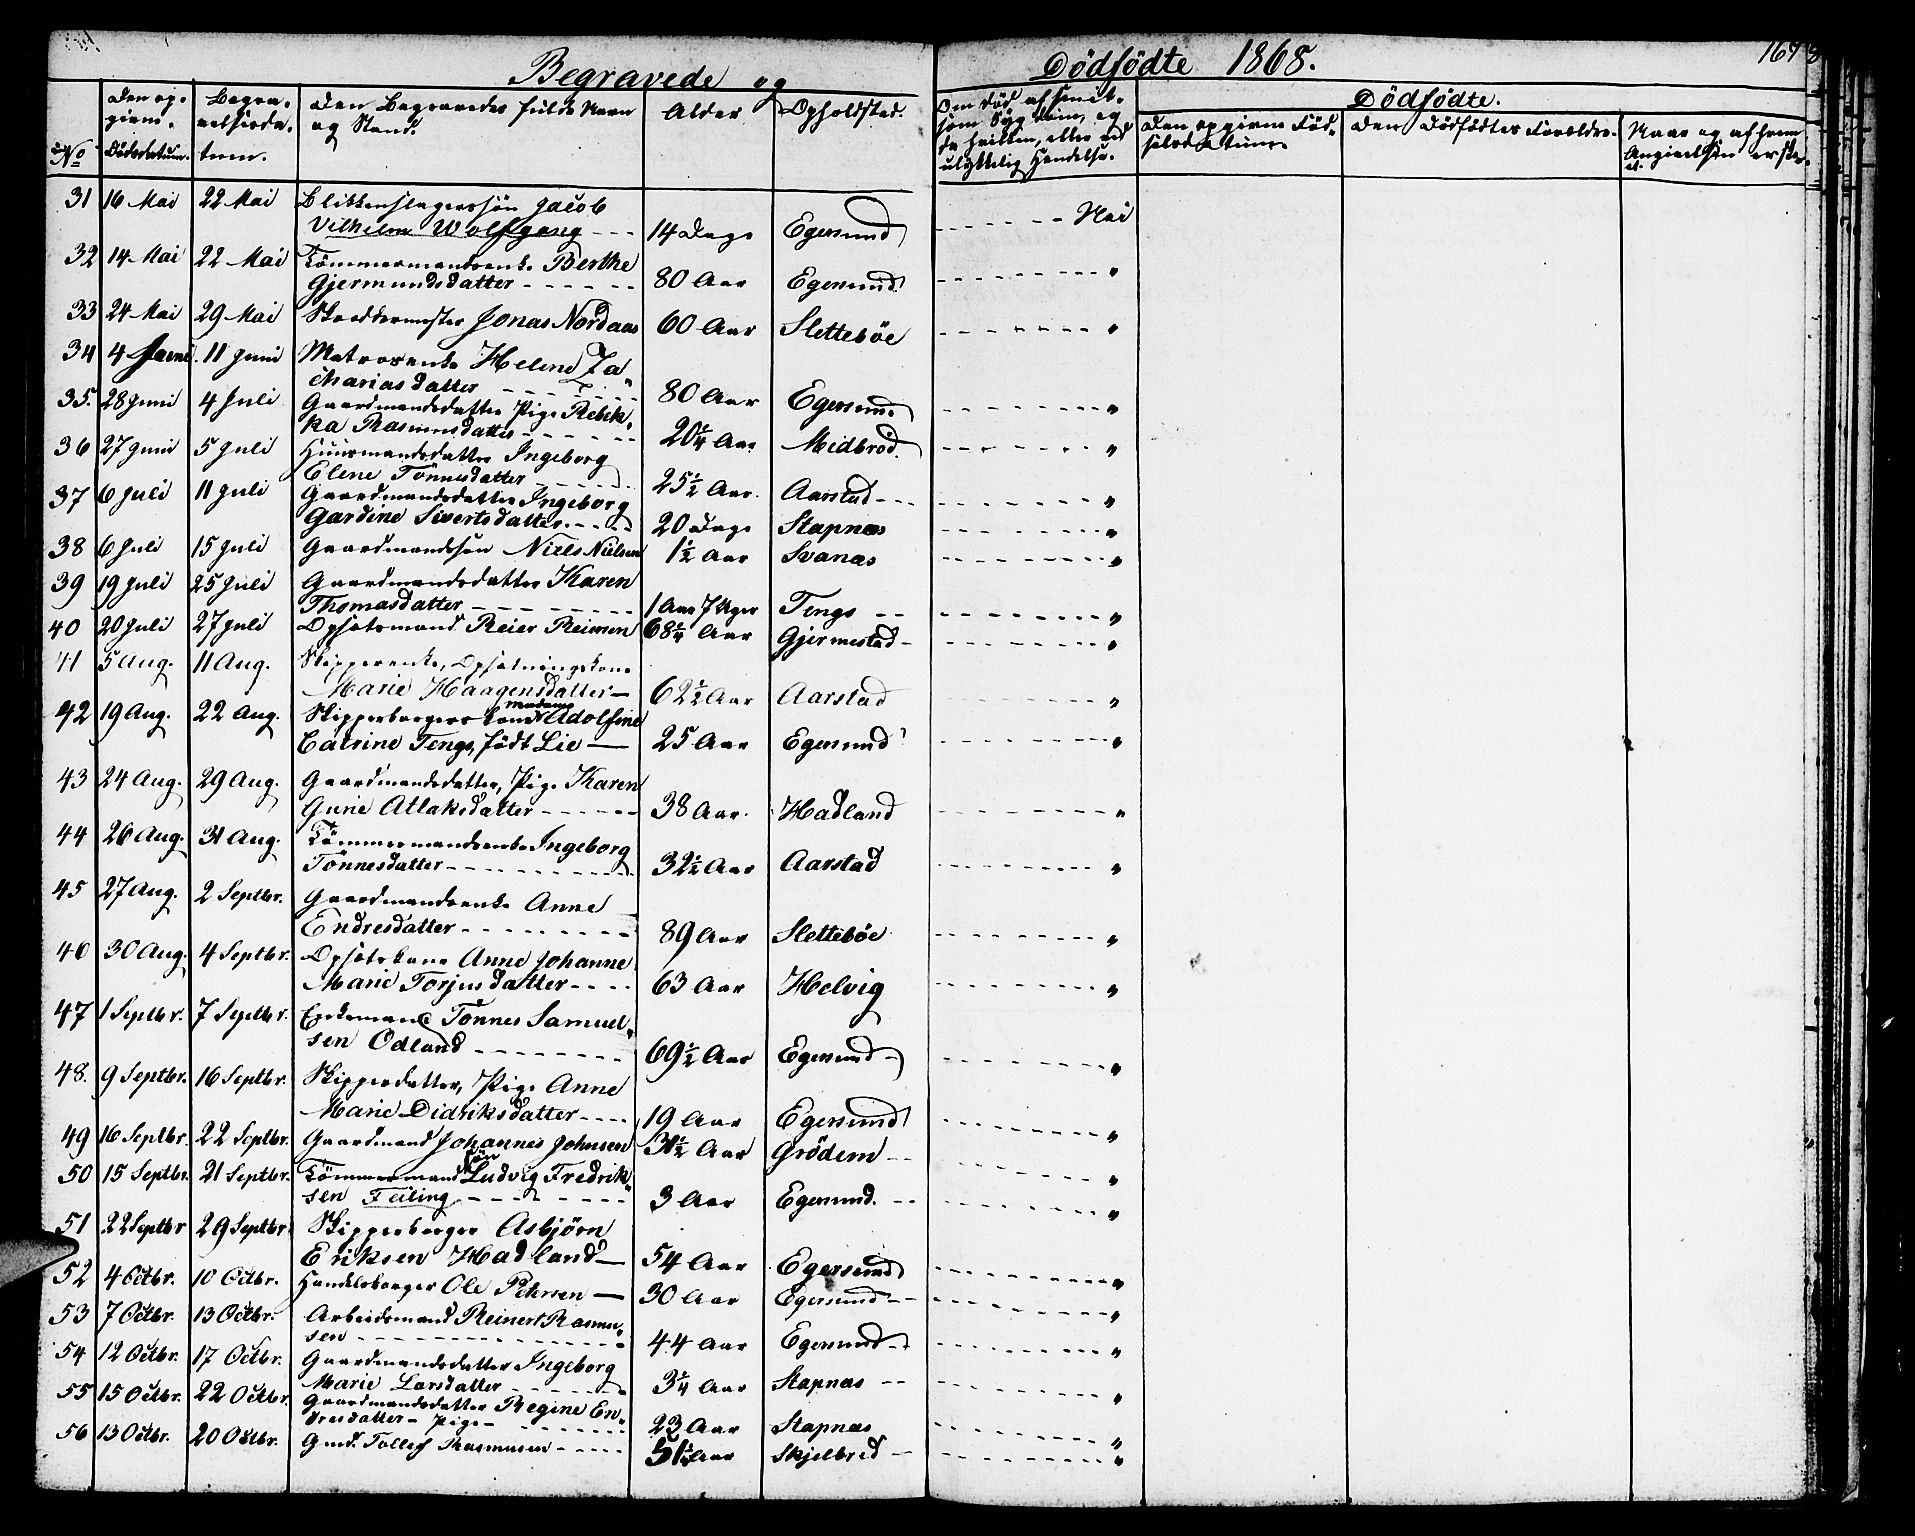 Begravede og Dödfödte 1868.
169
No
Den op-
givne
Dödsdatum.
Begra-
velsesda-
tum.
Den Begravedes fulde Navn
og Stand.
Alder
Opholdsted.
Om död af smit-
som Sygdom, og
da hvilken, eller ved
ulykkelig Hendelse.
Dödfödte.
Den opgivne Föd-
selsdatum.
Den Dödfödtes Forældre.
Naar og af hvem
Angivelsen er ske-
et.
31 16 Mai 22 Mai Blikkenslagerssön Jacob
Vilhelm Wolfgang - - - 14 Dage Egersund - - - - - Nei
32 14 Mai 22 Mai Tömmermandsenke Berthe
Gjermundsdatter - - - - - - 80 Aar Egersund - - - - - "
33 24 Mai 29 Mai Skreddermester Jonas Nordaas 60 Aar Slettebøe - - - - - "
34 4 Juni 11 Juni Matrosenke Helene Za-
chariasdatter - - - - - - 80 Aar Egersund - - - - - "
35. 28 Juni 4 Juli Gaardmandsdatter Pige Rebek-
ka Rasmusdatter - - - - - - 20¼ Aar Midbröd. - - - - - "
36 27 Juni 5 Juli Huusmandsdatter Ingeborg
Elene Tönnesdatter - - - - - 25½ Aar. Aarstad - - - - - - - "
37 6 Juli 11 Juli Gaardmandsdatter Ingeborg
Gardine Sivertsdatter. - - - - 20 Dage Stapnes - - - - - "
38 6 Juli 15 Juli Gaardmandssön Niels Nielsen 1½ Aar Svanæs - - - - - "
39 19 Juli 25 Juli Gaardmandsdatter Karen
Thomasdatter - - - - - - 1 Aar 7 Uger Tengs - - - - - - - "
40 20 Juli 27 Juli Opsatsmand Reier Reiersen 68¼ Aar Gjermestad - - - - - - "
41 5 Aug. 11 Aug. Skipperenke, Opsætningskone
Marie Haagensdatter — 62½ Aar Aarstad - - - - - "
42 19 Aug. 22 Aug. Skipperborgers kone madame Adolfine
Catrine Tengs, födt Lie — 25 Aar Egersund - - - - - "
43 24 Aug. 29 Aug. Gaardmandsdatter, Pige Karen
Gurie Atlaksdatter - - - - - - 38 Aar. Hadland - - - - - "
44 26 Aug. 31 Aug. Tömmermandsenke Ingeborg
Tönnesdatter - - - - - - - 32½ Aar Aarstad - - - - - "
45 27 Aug. 2 Septbr. Gaardmandsenke Anne
Endresdatter - - - - - - - 89 Aar Slettebøe - - - - - "
46 30 Aug. 4 Septbr. Opsatskone Anne Johanne
Marie Torjusdatter - - - - 63 Aar Helvig - - - - - "
47 1 Septbr. 7 Septbr. Enkemand Tönnes Samuel-
sen Odland - - - - - - - 69½ Aar Egersund - - - - - - "
48. 9 Septbr. 16 Septbr. Skipperdatter, Pige Anne
Marie Didriksdatter - - - - 19 Aar Egersund - - - - - "
49 16 Septbr. 22 Septbr. Gaardmand Johannes Johnsen 31½ Aar Grödem - - - - - - - "
50 15 Septbr. 21 Septbr. Tömmermand sön Ludvig Fredrik-
sen Feiling - - - - - - - 3 Aar Egersund. - - - - - - - "
51 22 Septbr 29 Septbr. Skipperborger Asbjörn
Eriksen Hadland — 54 Aar Egersund - - - - - "
52 4 Octbr. 10 Octbr. Handelsborger Ole Petersen — 30 Aar Egersund - - - - - - - "
53 7 Octbr. 13 Octbr. Arbeidsmand Reinert Rasmu-
sen - - - - - - - - - - - 44 Aar Egersund - - - - - - - "
54 12 Octbr. 17 Octbr. Gaardmandsdatter Ingeborg
Marie Larsdatter - - - - - - 3¼ Aar Stapnes - - - - - - - "
55 15 Octbr. 22 Octbr. Gaardmandsdatter Regine En-
dresdatter - Pige - - - - - - 23 Aar Stapnæs - - - - - "
56 13 Octbr. 20 Octbr. Gmd. Tollef Rasmusen - - - - - 51½ Aar Skjelbred - - - - - - - "